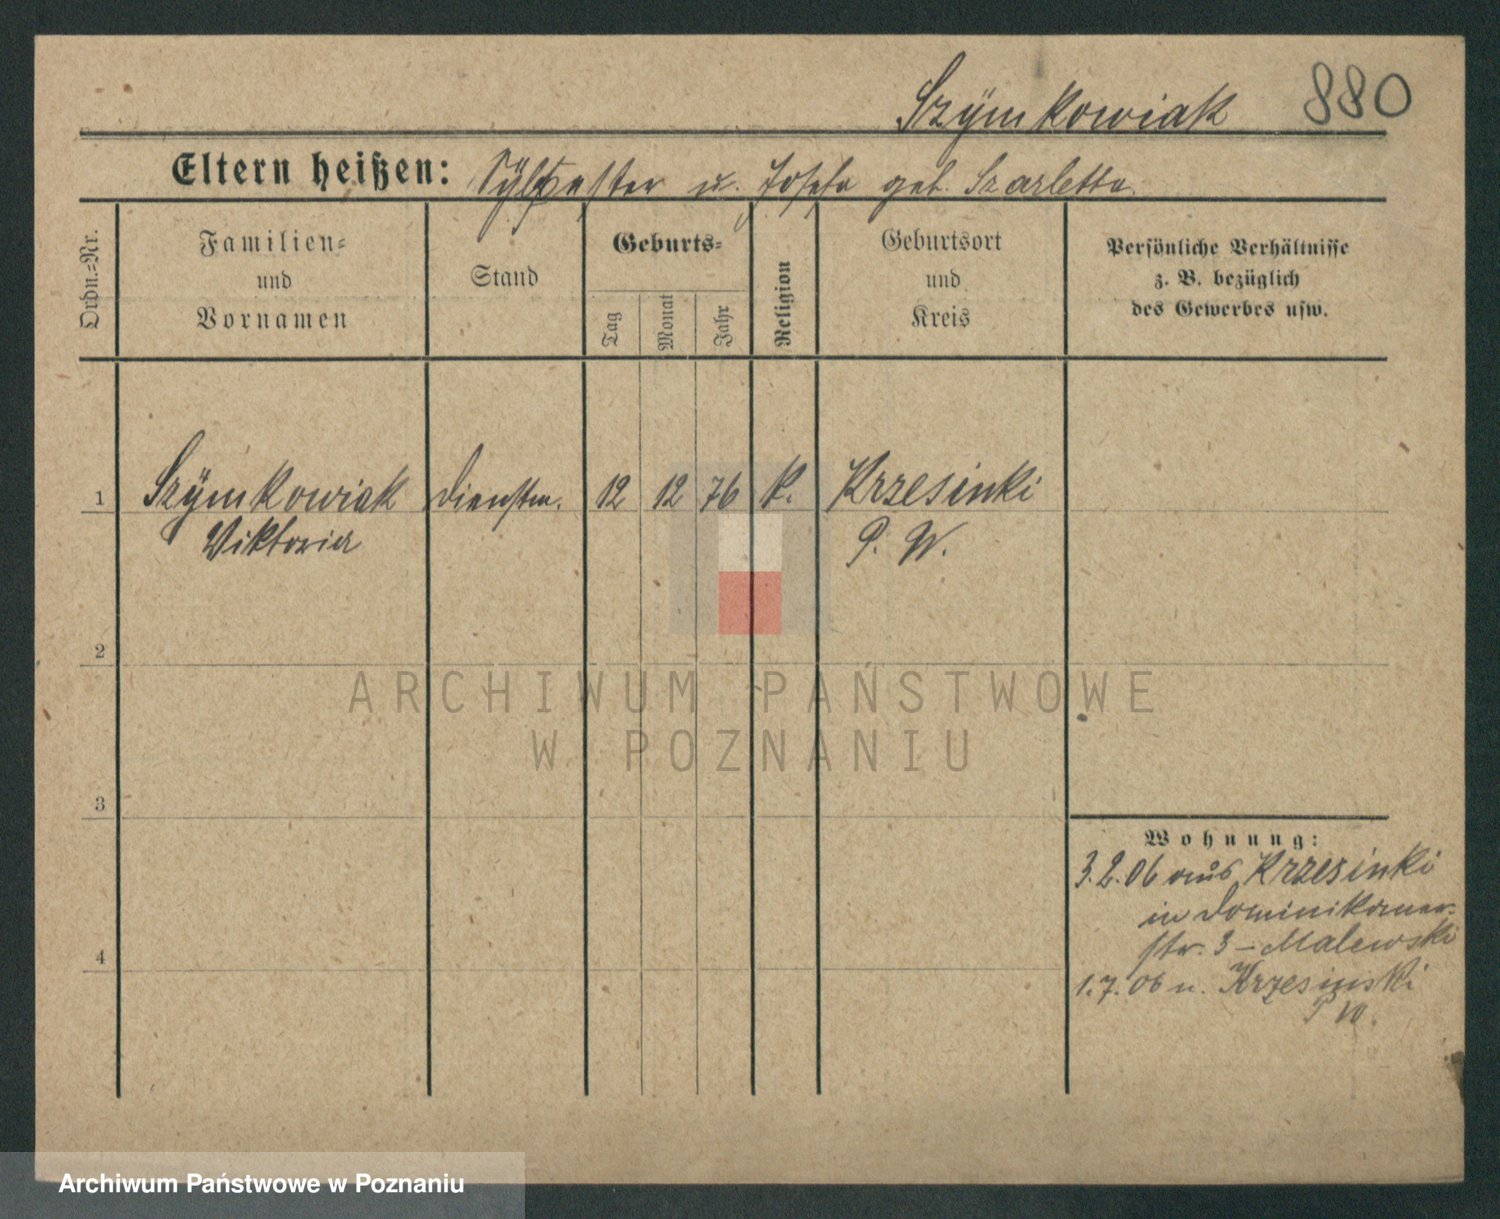 Szÿmkowiak 880
Eltern heißen: Sÿlvester u. Josefa geb. Szarletta.
Ordn.-Nr.
Familien-
und
Vornamen
Stand
Geburts-
Tag
Monat
Jahr
Religion
Geburtsort
und
Kreis
Persönliche Verhältnisse
z. B. bezüglich
des Gewerbes usw.
1 Szÿmkowiak Dienstm. 12 12 76 k. Krzesinki
Viktoria P. W.
2
ARCHIWUM PAŃSTWOWE
W POZNANIU
3
Wohnung:
3.2.06 aus Krzesinki
in Dominikaner-
str. 3 – Malewski
4
1.7.06 n. Krzesinski
P W.
Archiwum Państwowe w Poznaniu